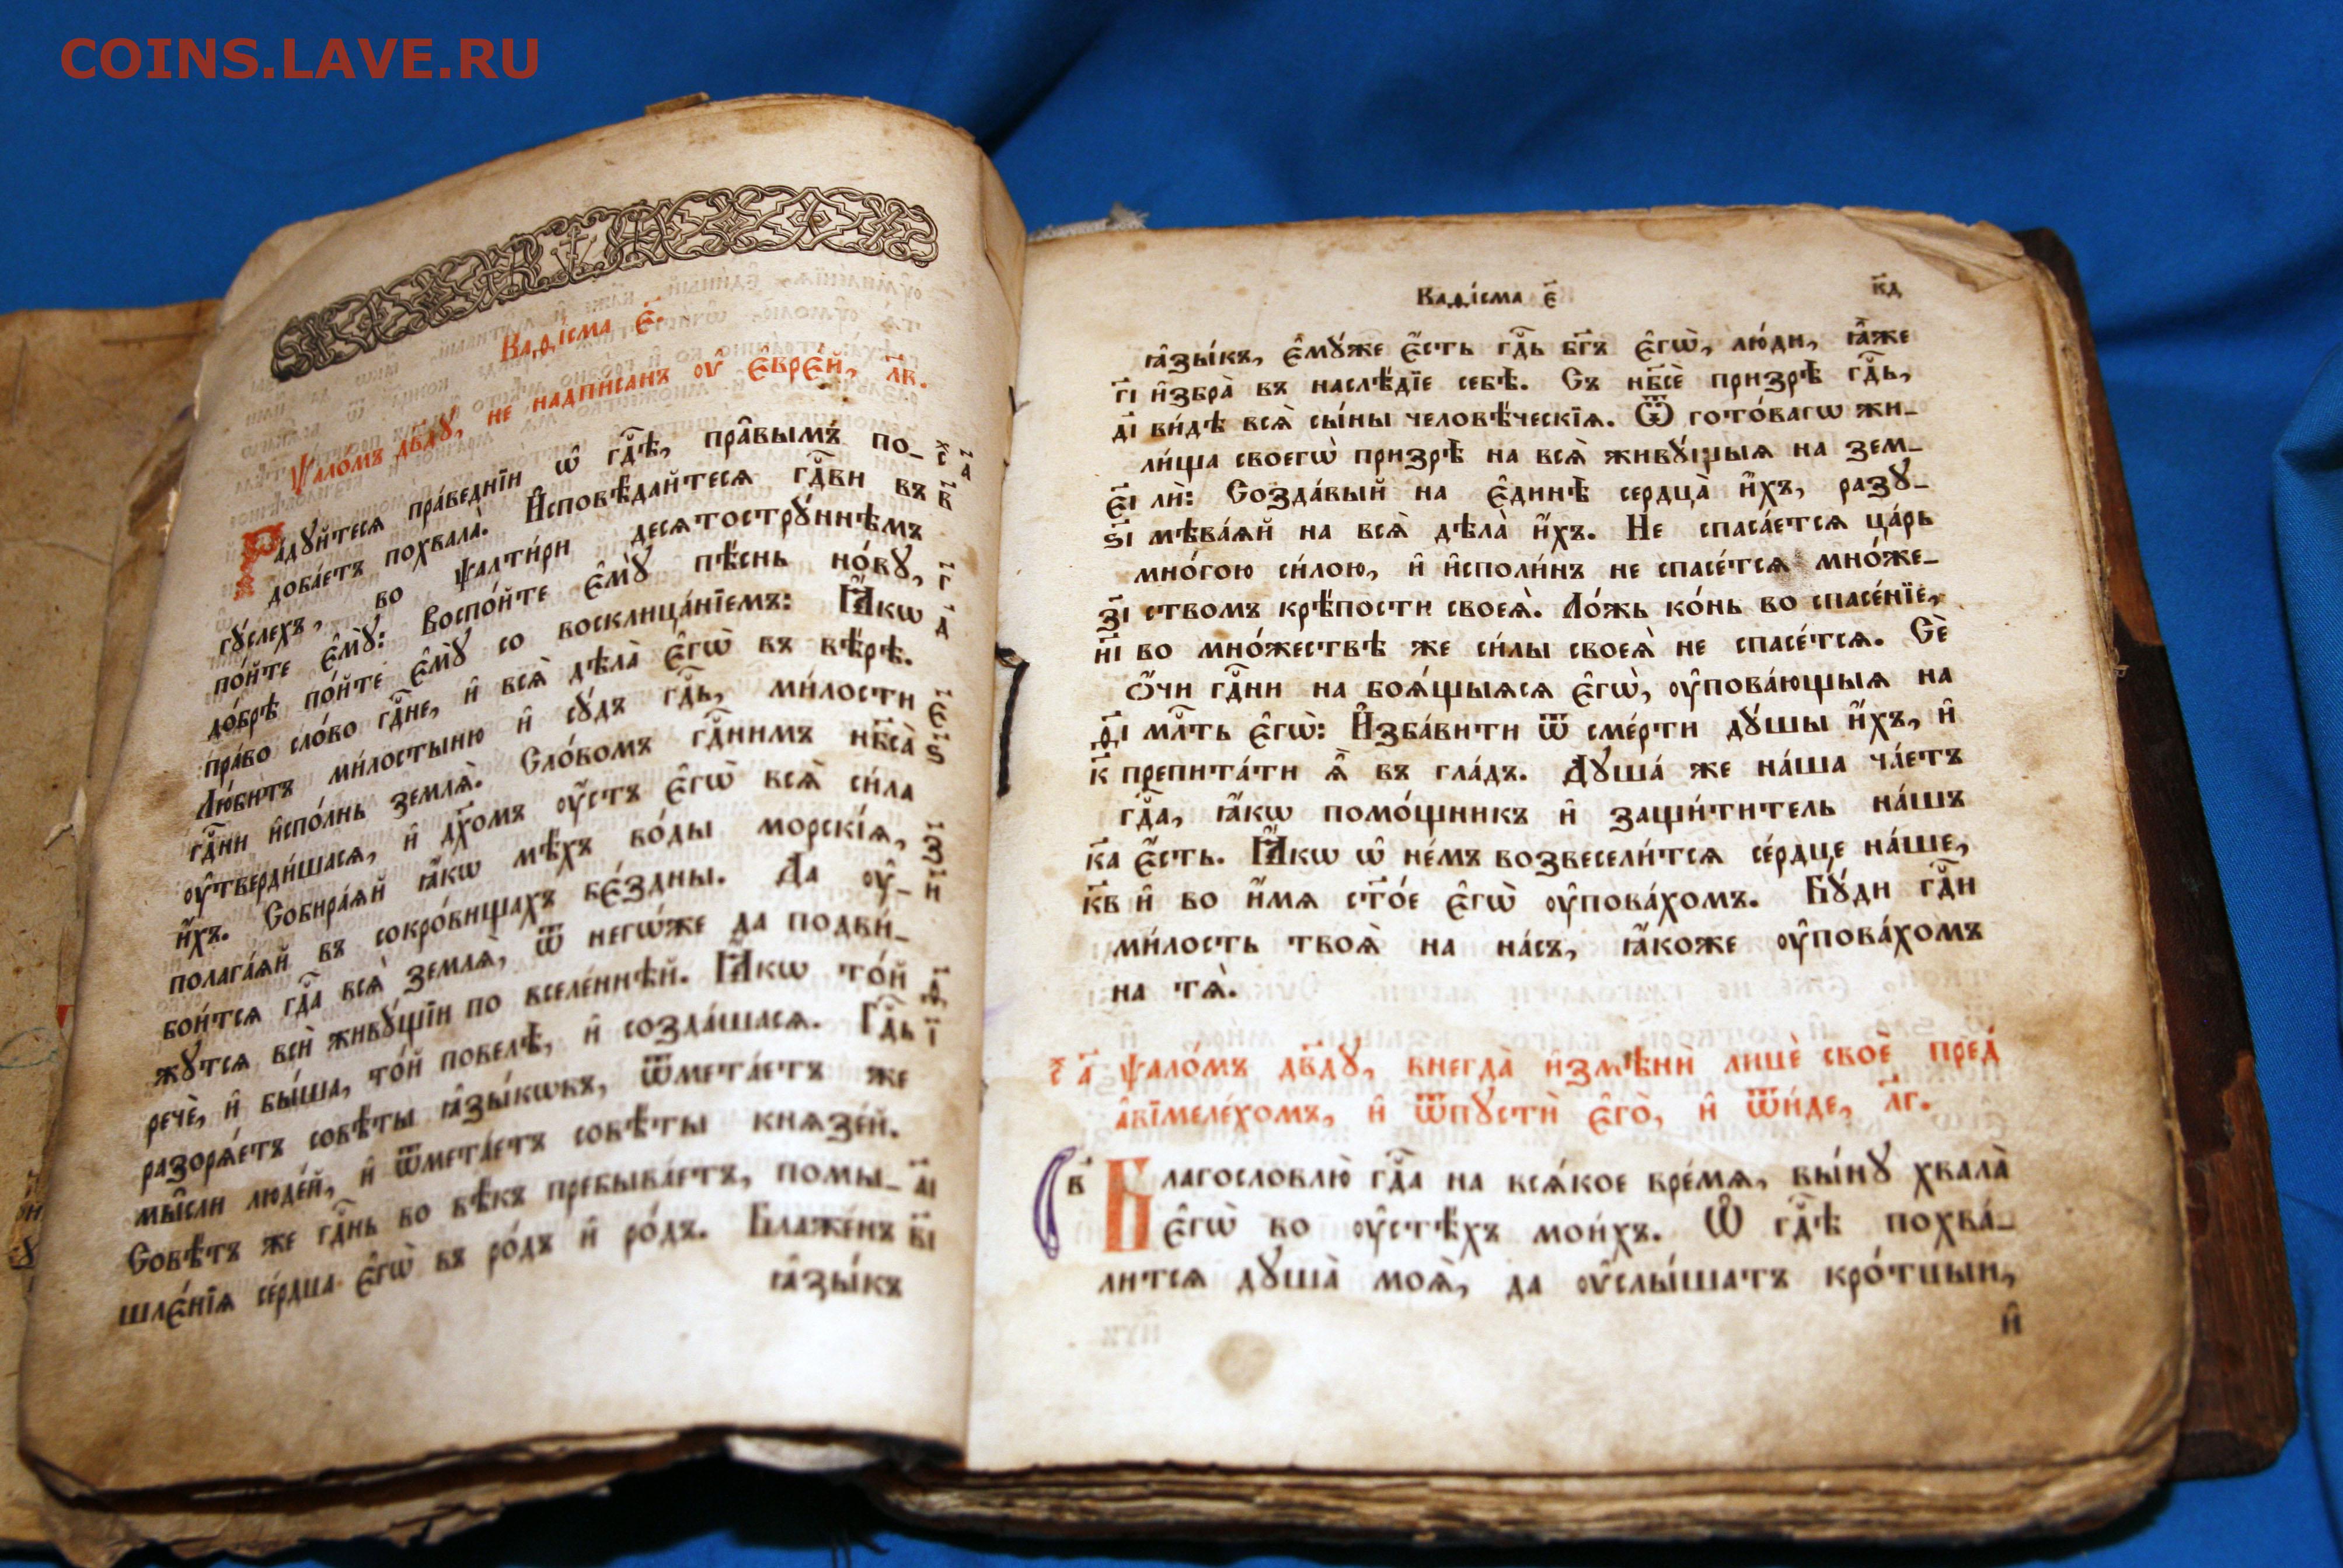 COINS.LAVE.RU
Каѳі́сма є҃.
Ѱало́мъ дв҃дꙋ, не надписанъ ᲂу҆ є҆врє́й, л҃в.
Ра́дꙋйтеся пра́веднїи ѡ҆ гдⷭ҇ѣ, пра̂вымъ по-
доба́етъ похвала̀. И҆сповѣ́дайтеся гдⷭ҇ви въ в҃
гꙋ́слехъ, во ѱалти́ри десятострꙋ́ннѣмъ
по́йте є҆мꙋ̀: Воспо́йте є҆мꙋ̀ пѣ́снь но́вꙋ, г҃
до́брѣ по́йте є҆мꙋ̀ со восклица́нїемъ: Ꙗ҆́кѡ д҃
пра́во сло́во гдⷭ҇не, и҆ вся̀ дѣла̀ є҆гѡ̀ въ вѣ́рѣ.
Лю́битъ ми́лостыню и҆ сꙋ́дъ гдⷭ҇ь, ми́лости є҃
гдⷭ҇ни и҆спо́лнь земля̀. Сло́вомъ гдⷭ҇нимъ нб҃са̀ ѕ҃
ᲂу҆тверди́шася, и҆ дх҃омъ ᲂу҆́стъ є҆гѡ̀ вся̀ си́ла
и҆́хъ. Собира́яй ꙗ҆́кѡ мѣ́хъ во́ды морскі́я, з҃
полага́яй въ сокро́вищахъ бе́здны. Да ᲂу҆- и҃
бои́тся гдⷭ҇а вся̀ земля̀, ѿ негѡ́же да подви́-
жꙋтся вси̂ живꙋ́щїи по вселе́ннѣй. Ꙗ҆́кѡ то́й ѳ҃
речѐ, и҆ бы́ша, то́й повелѣ̀, и҆ созда́шася. Гдⷭ҇ь і҃
разоря́етъ совѣ́ты ꙗ҆зы́кѡвъ, ѿмета́етъ же
мы̂сли люде́й, и҆ ѿмета́етъ совѣ́ты князе́й.
Совѣ́тъ же гдⷭ҇нь во вѣ́къ пребыва́етъ, помы- а҃і
шле́нїя се́рдца є҆гѡ̀ въ ро́дъ и҆ ро́дъ. Блаже́нъ в҃і
ꙗ҆зы́къ
Каѳі́сма є҃
к҃д
ꙗ҆зы́къ, є҆мꙋ́же є҆́сть гдⷭ҇ь бг҃ъ є҆гѡ̀, лю́ди, ꙗ҆̀же
г҃і и҆збра̀ въ наслѣ́дїе себѣ̀. Съ нб҃сѐ призрѣ̀ гдⷭ҇ь,
д҃і ви́дѣ вся̀ сы́ны человѣ́ческїя. Ѿ гото́вагѡ жи-
ли́ща своегѡ̀ призрѣ̀ на вся̀ живꙋ́щыя на зем-
є҃і лѝ: Созда́вый на є҆ди́нѣ сердца̀ и҆́хъ, разꙋ-
ѕ҃і мѣва́яй на вся̀ дѣла̀ и҆́хъ. Не спаса́ется ца́рь
мно́гою си́лою, и҆ и҆споли́нъ не спасе́тся мно́же-
з҃і ствомъ крѣ́пости своея̀. Ло́жь ко́нь во спасе́нїе,
и҃і во мно́жествѣ же си́лы своея̀ не спасе́тся. Сѐ
ѻ҆́чи гдⷭ҇ни на боя́щыяся є҆гѡ̀, ᲂу҆пова́ющыя на
ѳ҃і млⷭ҇ть є҆гѡ̀: И҆зба́вити ѿ сме́рти дꙋ́шы и҆́хъ, и҆
к҃ препита́ти я҆̀ въ гла́дъ. Дꙋша́ же на́ша ча́етъ
гдⷭ҇а, ꙗ҆́кѡ помо́щникъ и҆ защи́титель на́шъ
к҃а є҆́сть. Ꙗ҆́кѡ ѡ҆ не́мъ возвесели́тся се́рдце на́ше,
к҃в и҆ во и҆́мя ст҃о́е є҆гѡ̀ ᲂу҆пова́хомъ. Бꙋ́ди гдⷭ҇и
ми́лость твоя̀ на на́съ, ꙗ҆́коже ᲂу҆пова́хомъ
на тя̀.
а҃ ѱало́мъ дв҃дꙋ, внегда̀ и҆змѣнѝ лицѐ своѐ пред̾
а҆вїмеле́хомъ, и҆ ѿпꙋстѝ є҆го̀, и҆ ѿи́де, л҃г.
в҃ Благословлю̀ гдⷭ҇а на вся́кое вре́мя, вы́нꙋ хвала̀
є҆гѡ̀ во ᲂу҆стѣ́хъ мои́хъ. Ѡ҆ гдⷭ҇ѣ похва́-
лится дꙋша̀ моя̀, да ᲂу҆слы́шатъ кро́тцыи,
и҆